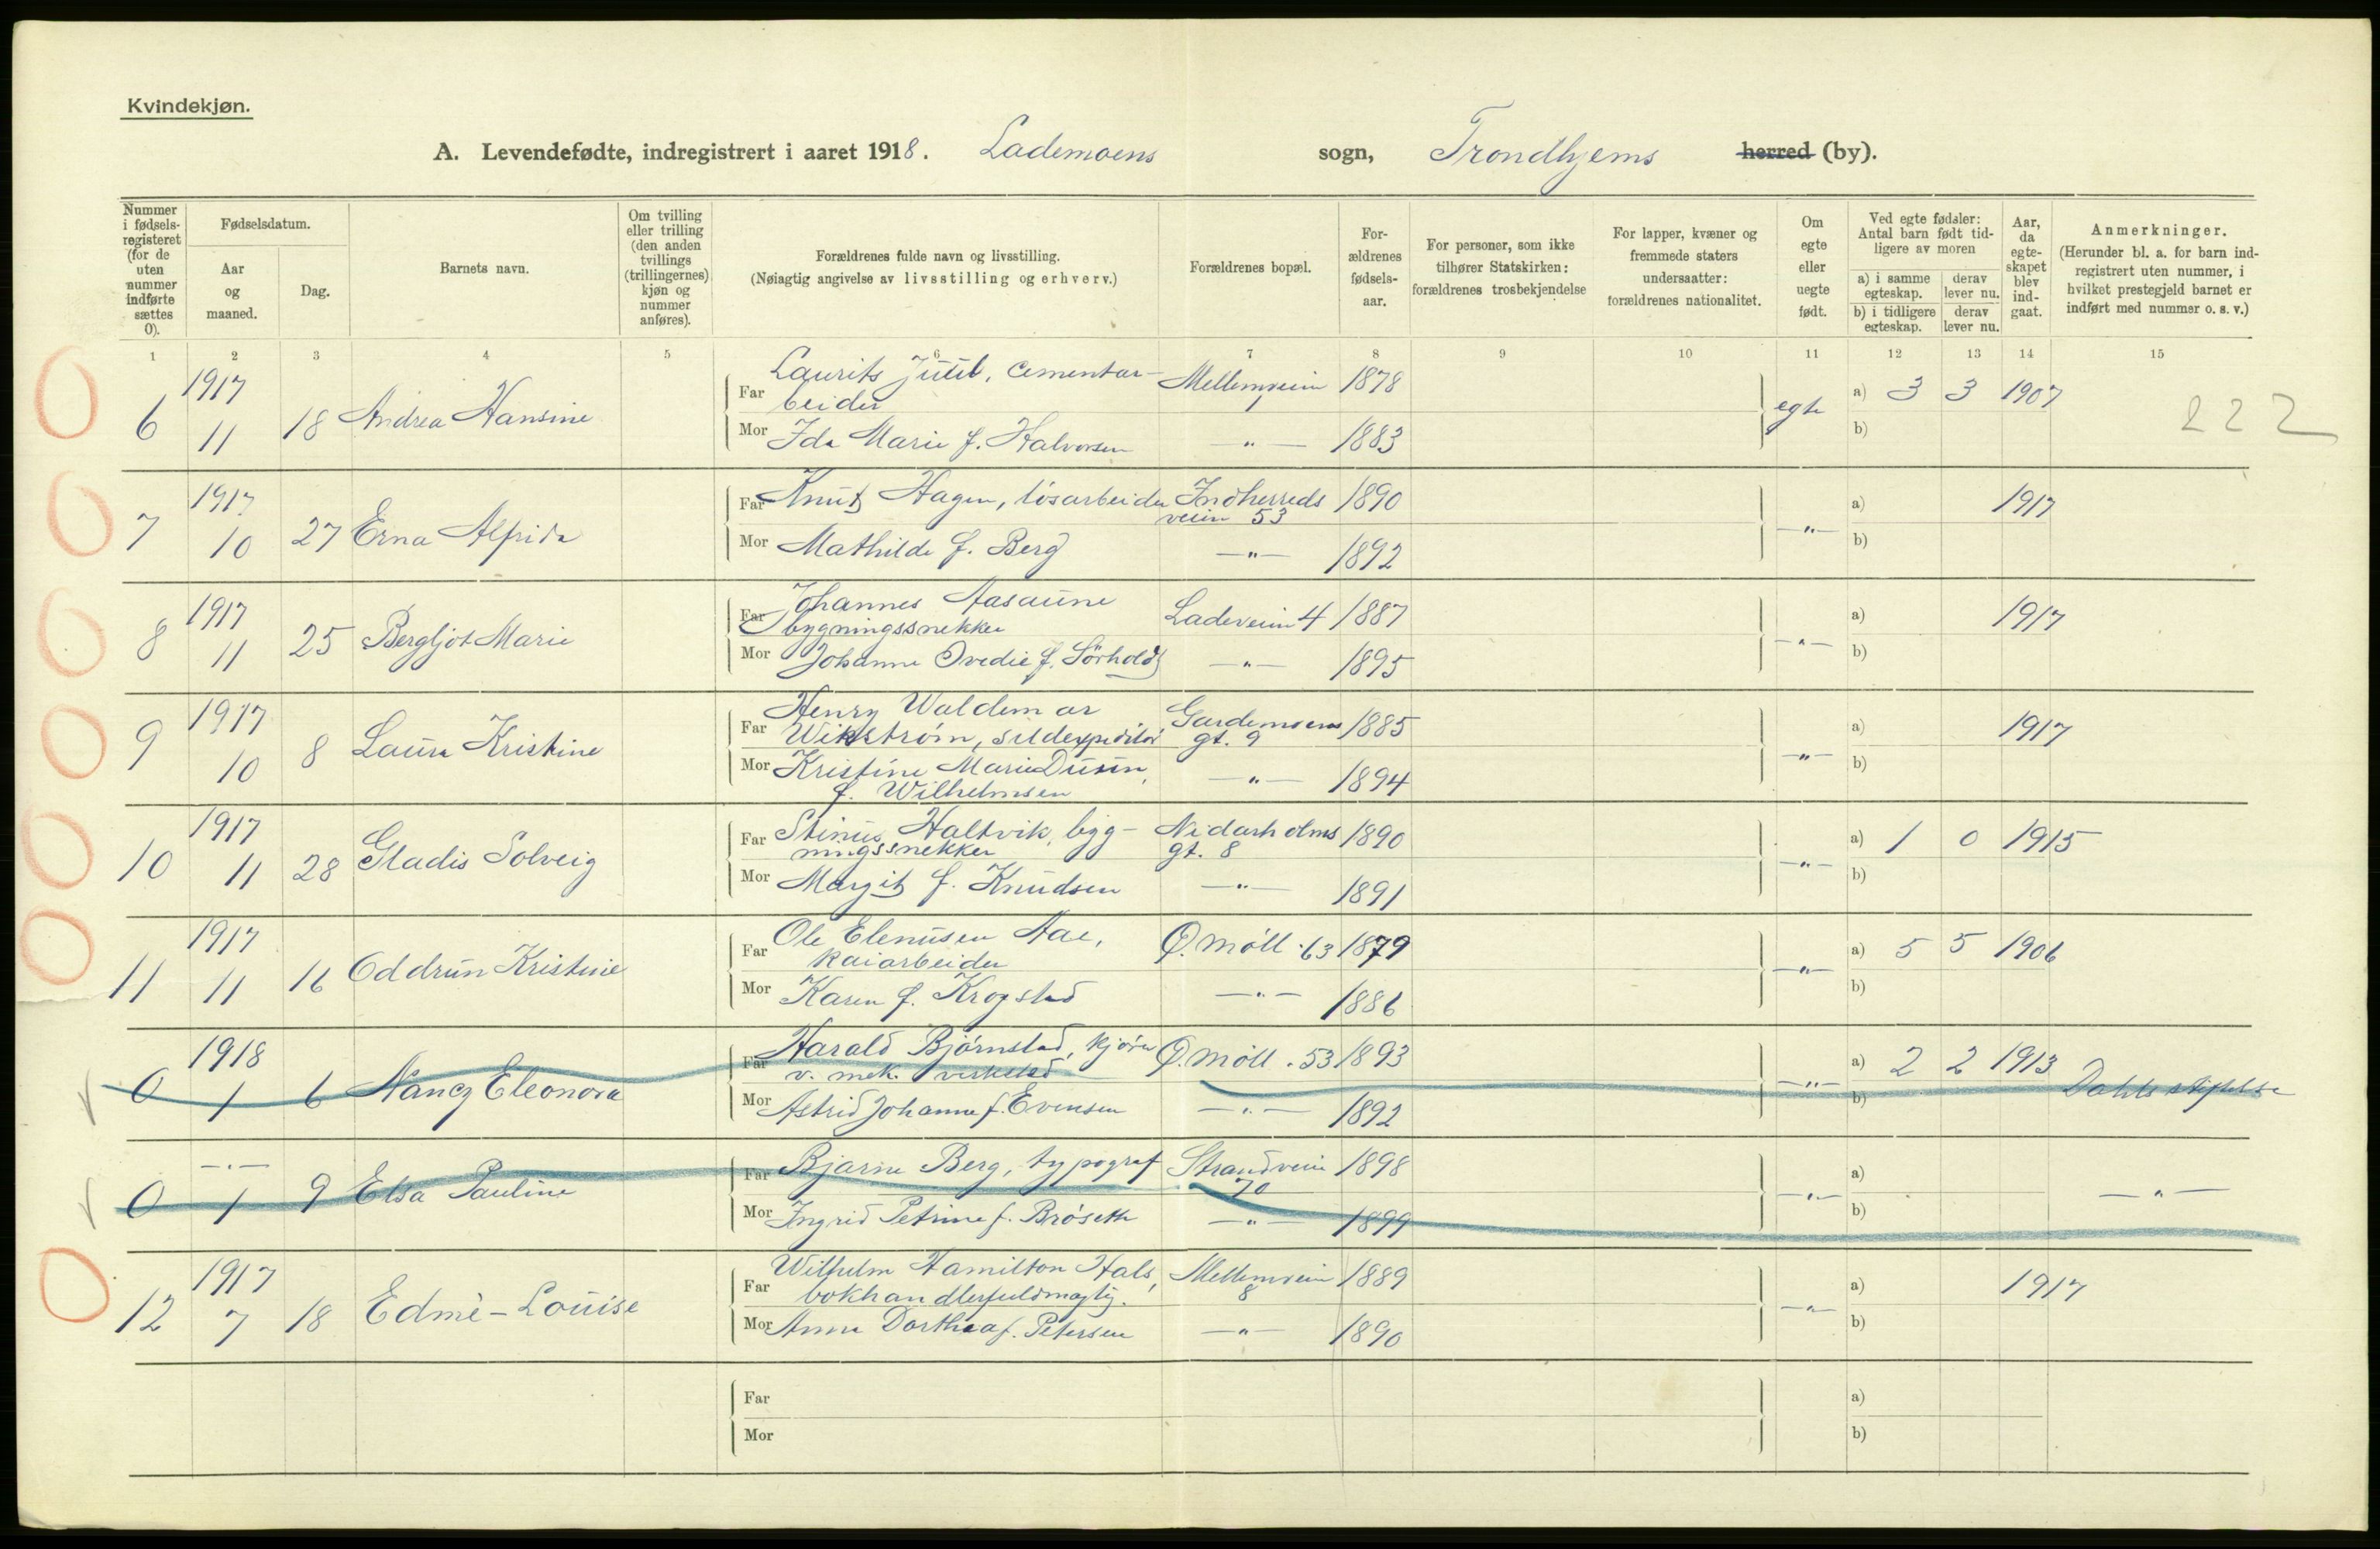 Kvindekjøn.
A. Levendefødte, indregistrert i aaret 1918. Lademoens sogn, Trondhjems herred (by).
Nummer i fødsels-registeret (for de uten nummer indførte sættes 0).
Fødselsdatum.
Aar og maaned.
Dag.
Barnets navn.
Om tvilling eller trilling (den anden tvillings (trillingernes) kjøn og nummer anføres).
Forældrenes fulde navn og livsstilling.
(Nøiagtig angivelse av livsstilling og erhverv.)
Forældrenes bopæl.
For-ældrenes fødsels-aar.
For personer, som ikke tilhører Statskirken: forældrenes trosbekjendelse
For lapper, kvæner og fremmede staters undersaatter: forældrenes nationalitet.
Om egte eller uegte født.
Ved egte fødsler: Antal barn født tid-ligere av moren
a) i samme egteskap. derav lever nu.
b) i tidligere egteskap. derav lever nu.
Aar, da egte-skapet blev ind-gaat.
Anmerkninger.
(Herunder bl. a. for barn ind-registrert uten nummer, i hvilket prestegjeld barnet er indført med nummer o. s. v.)
1 2 3 4 5 6 7 8 9 10 11 12 13 14 15
6 1917 11 18 Andrea Hansine
Far Laurits Juul, cementar-beider Mellemveien 1 1878 egte a) 3 3 1907
Mor Ida Marie f. Halvorsen —"— 1883 b)
222
7 1917 10 27 Erna Alfrida
Far Knut Hagen, løsarbeider Indherreds veien 53 1890 —"— a) 1917
Mor Mathilde f. Berg —"— 1892 b)
8 1917 11 25 Bergljot Marie
Far Johannes Aasaune bygningssnekker Ladeveien 4 1887 —"— a) 1917
Mor Johanne Ovedie f. Sørholdt —"— 1895 b)
9 1917 10 8 Laura Kristine
Far Henry Waldemar Wikstrøm, sildexpeditør Gardemoens gt. 9 1885 —"— a) 1917
Mor Kristine Marie f. Wilhelmsen —"— 1894 b)
10 1917 11 28 Gladis Solveig
Far Stinus Haltvik, byg-ningssnekker Nidarholms gt. 8 1890 —"— a) 1 0 1915
Mor Margit f. Knudsen —"— 1891 b)
11 1917 11 16 Oddrun Kristine
Far Ole Elenusen Aae, kaiarbeider Ø. Møll. 63 1879 —"— a) 5 5 1906
Mor Karen f. Krogstad —"— 1886 b)
0 1918 1 6 Nancy Eleonora
Far Harald Bjørnstad, kjører v. mek. verksted Ø. Møll. 53 1893 —"— a) 2 2 1913 Dahls stiftelse
Mor Astrid Johanne f. Evensen —"— 1892 b)
0 —"— 1 9 Elsa Pauline
Far Bjarne Berg, typograf Strandveien 70 1898 —"— a) —"—
Mor Ingrid Petrine f. Brøseth —"— 1899 b)
12 1917 7 18 Edmè-Louise
Far Wilhelm Hamilton Hals, bokhandlerfuldmægtig. Mellemveien 8 1889 —"— a) 1917
Mor Anna Dorthea f. Petersen —"— 1890 b)
Far a)
Mor b)